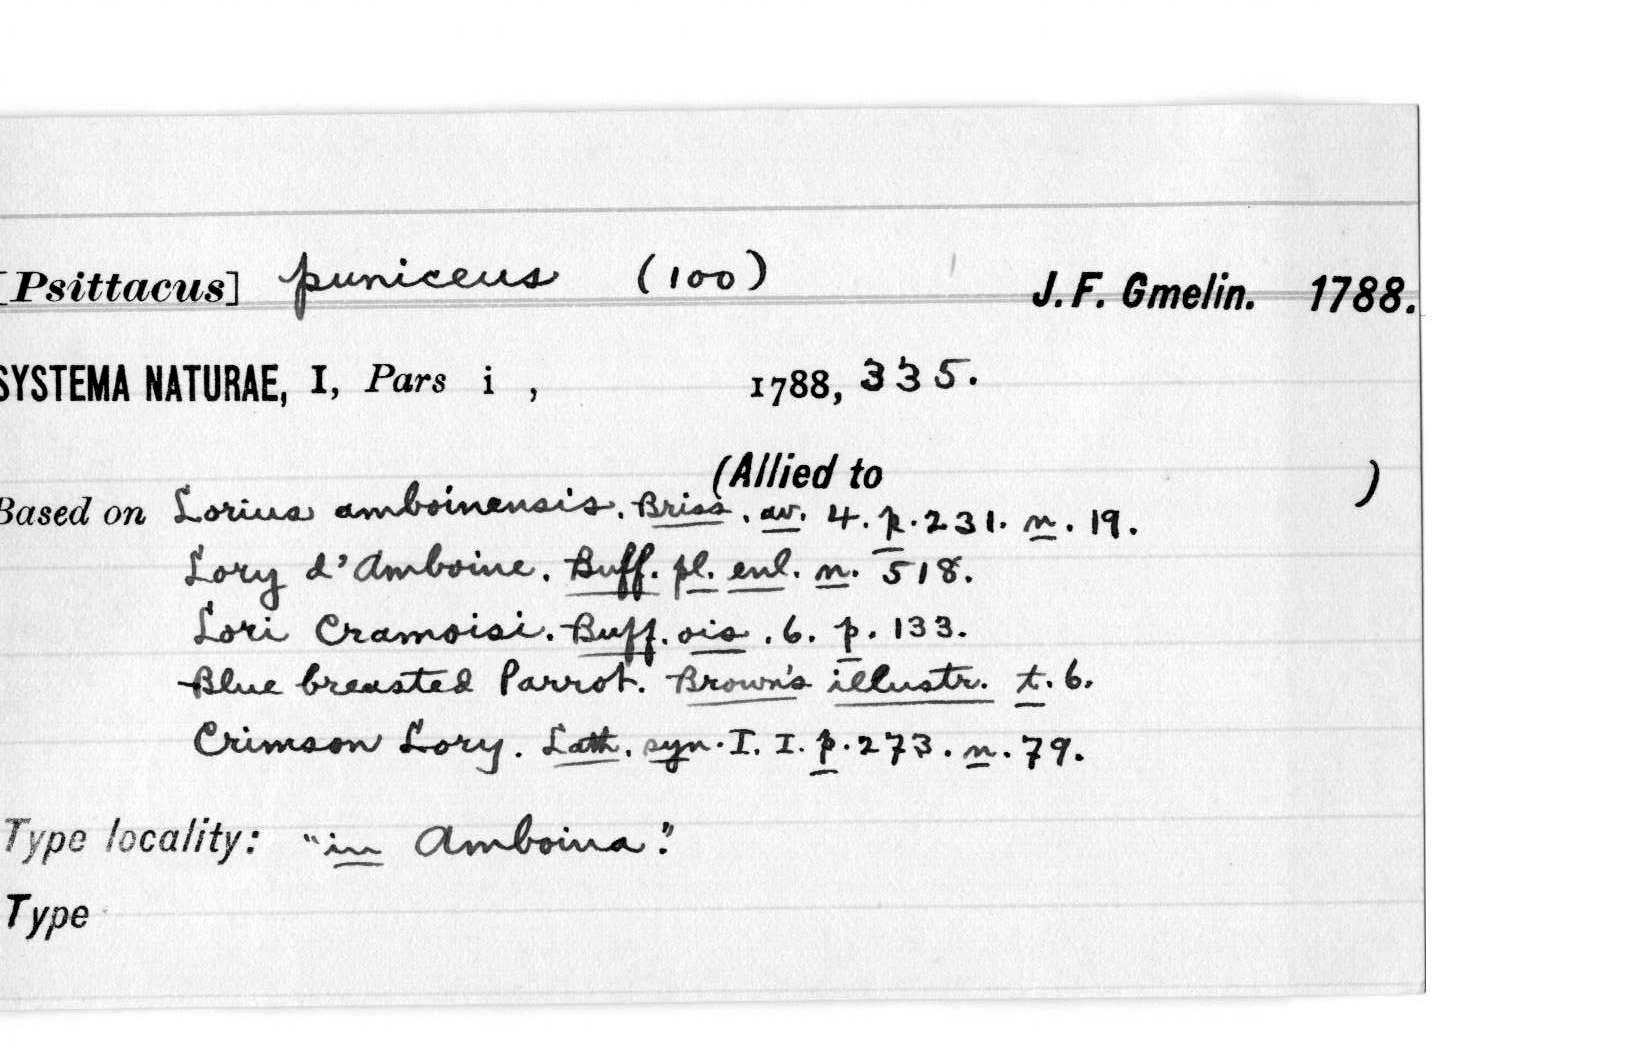 [Psittacus] puniceus (100) J. F. Gmelin. 1788.
SYSTEMA NATURAE, I, Pars i, 1788, 335.
(Allied to )
Based on Lorius amboinensis. Briss. av. 4. p. 231. n. 19.
Lory d'Amboine. Buff. pl. enl. n. 518.
Lori Cramoisi. Buff. ois. 6. p. 133.
Blue breasted Parrot. Brown's illustr. t. 6.
Crimson Lory. Lath. syn. I. I. p. 273. n. 79.
Type locality: "in Amboina".
Type